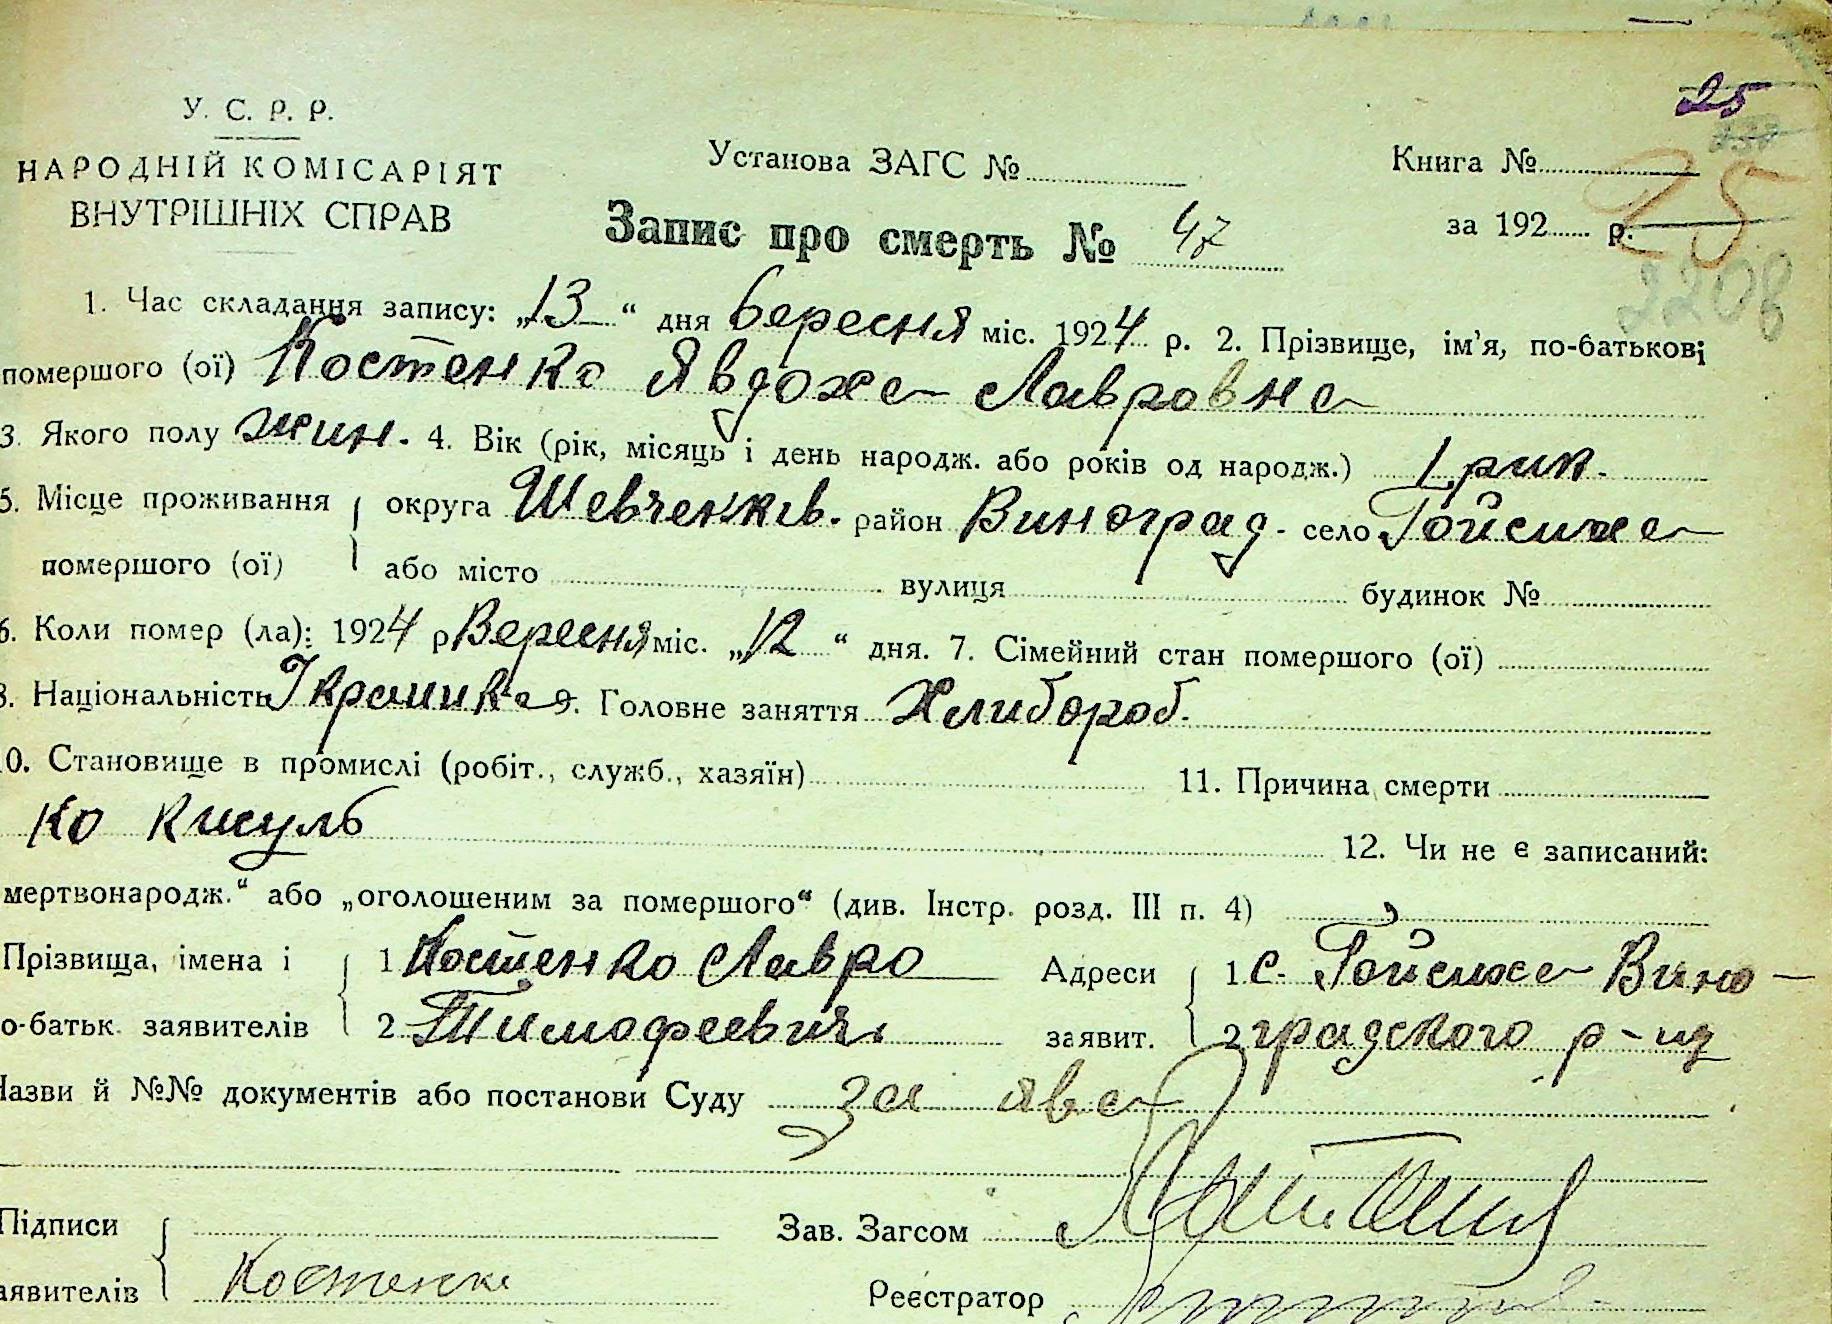 25
У. С. Р. Р.
НАРОДНІЙ КОМІСАРІЯТ
ВНУТРІШНІХ СПРАВ
Установа ЗАГС №
Книга №
за 192 р.
25
2208
Запис про смерть № 47
1. Час складання запису: „13“ дня вересня міс. 1924 р. 2. Прізвище, ім'я, по-батькові
помершого (ої) Костенко Явдоха Лавровна
3. Якого полу жин. 4. Вік (рік, місяць і день народж. або років од народж.) 1 рик.
5. Місце проживання округа Шевченків. район Виноград- село Гойсиха
помершого (ої) або місто вулиця будинок №
6. Коли помер (ла): 1924 р Вересня міс. „12“ дня. 7. Сімейний стан помершого (ої)
8. Національність Ікраинка 9. Головне заняття Хлибороб.
10. Становище в промислі (робіт., служб., хазяїн) 11. Причина смерти
12. Чи не є записаний:
мертвонародж.“ або „оголошеним за помершого“ (див. Інстр. розд. III п. 4)
Прізвища, імена і 1 Костенко Лавро Адреси 1 с. Гойсиха Вино-
о-батьк. заявителів 2 Тимофеевич заявит. 2 градского р-на
Назви й №№ документів або постанови Суду за ява
Підписи Зав. Загсом
аявителів Костенко Реєстратор